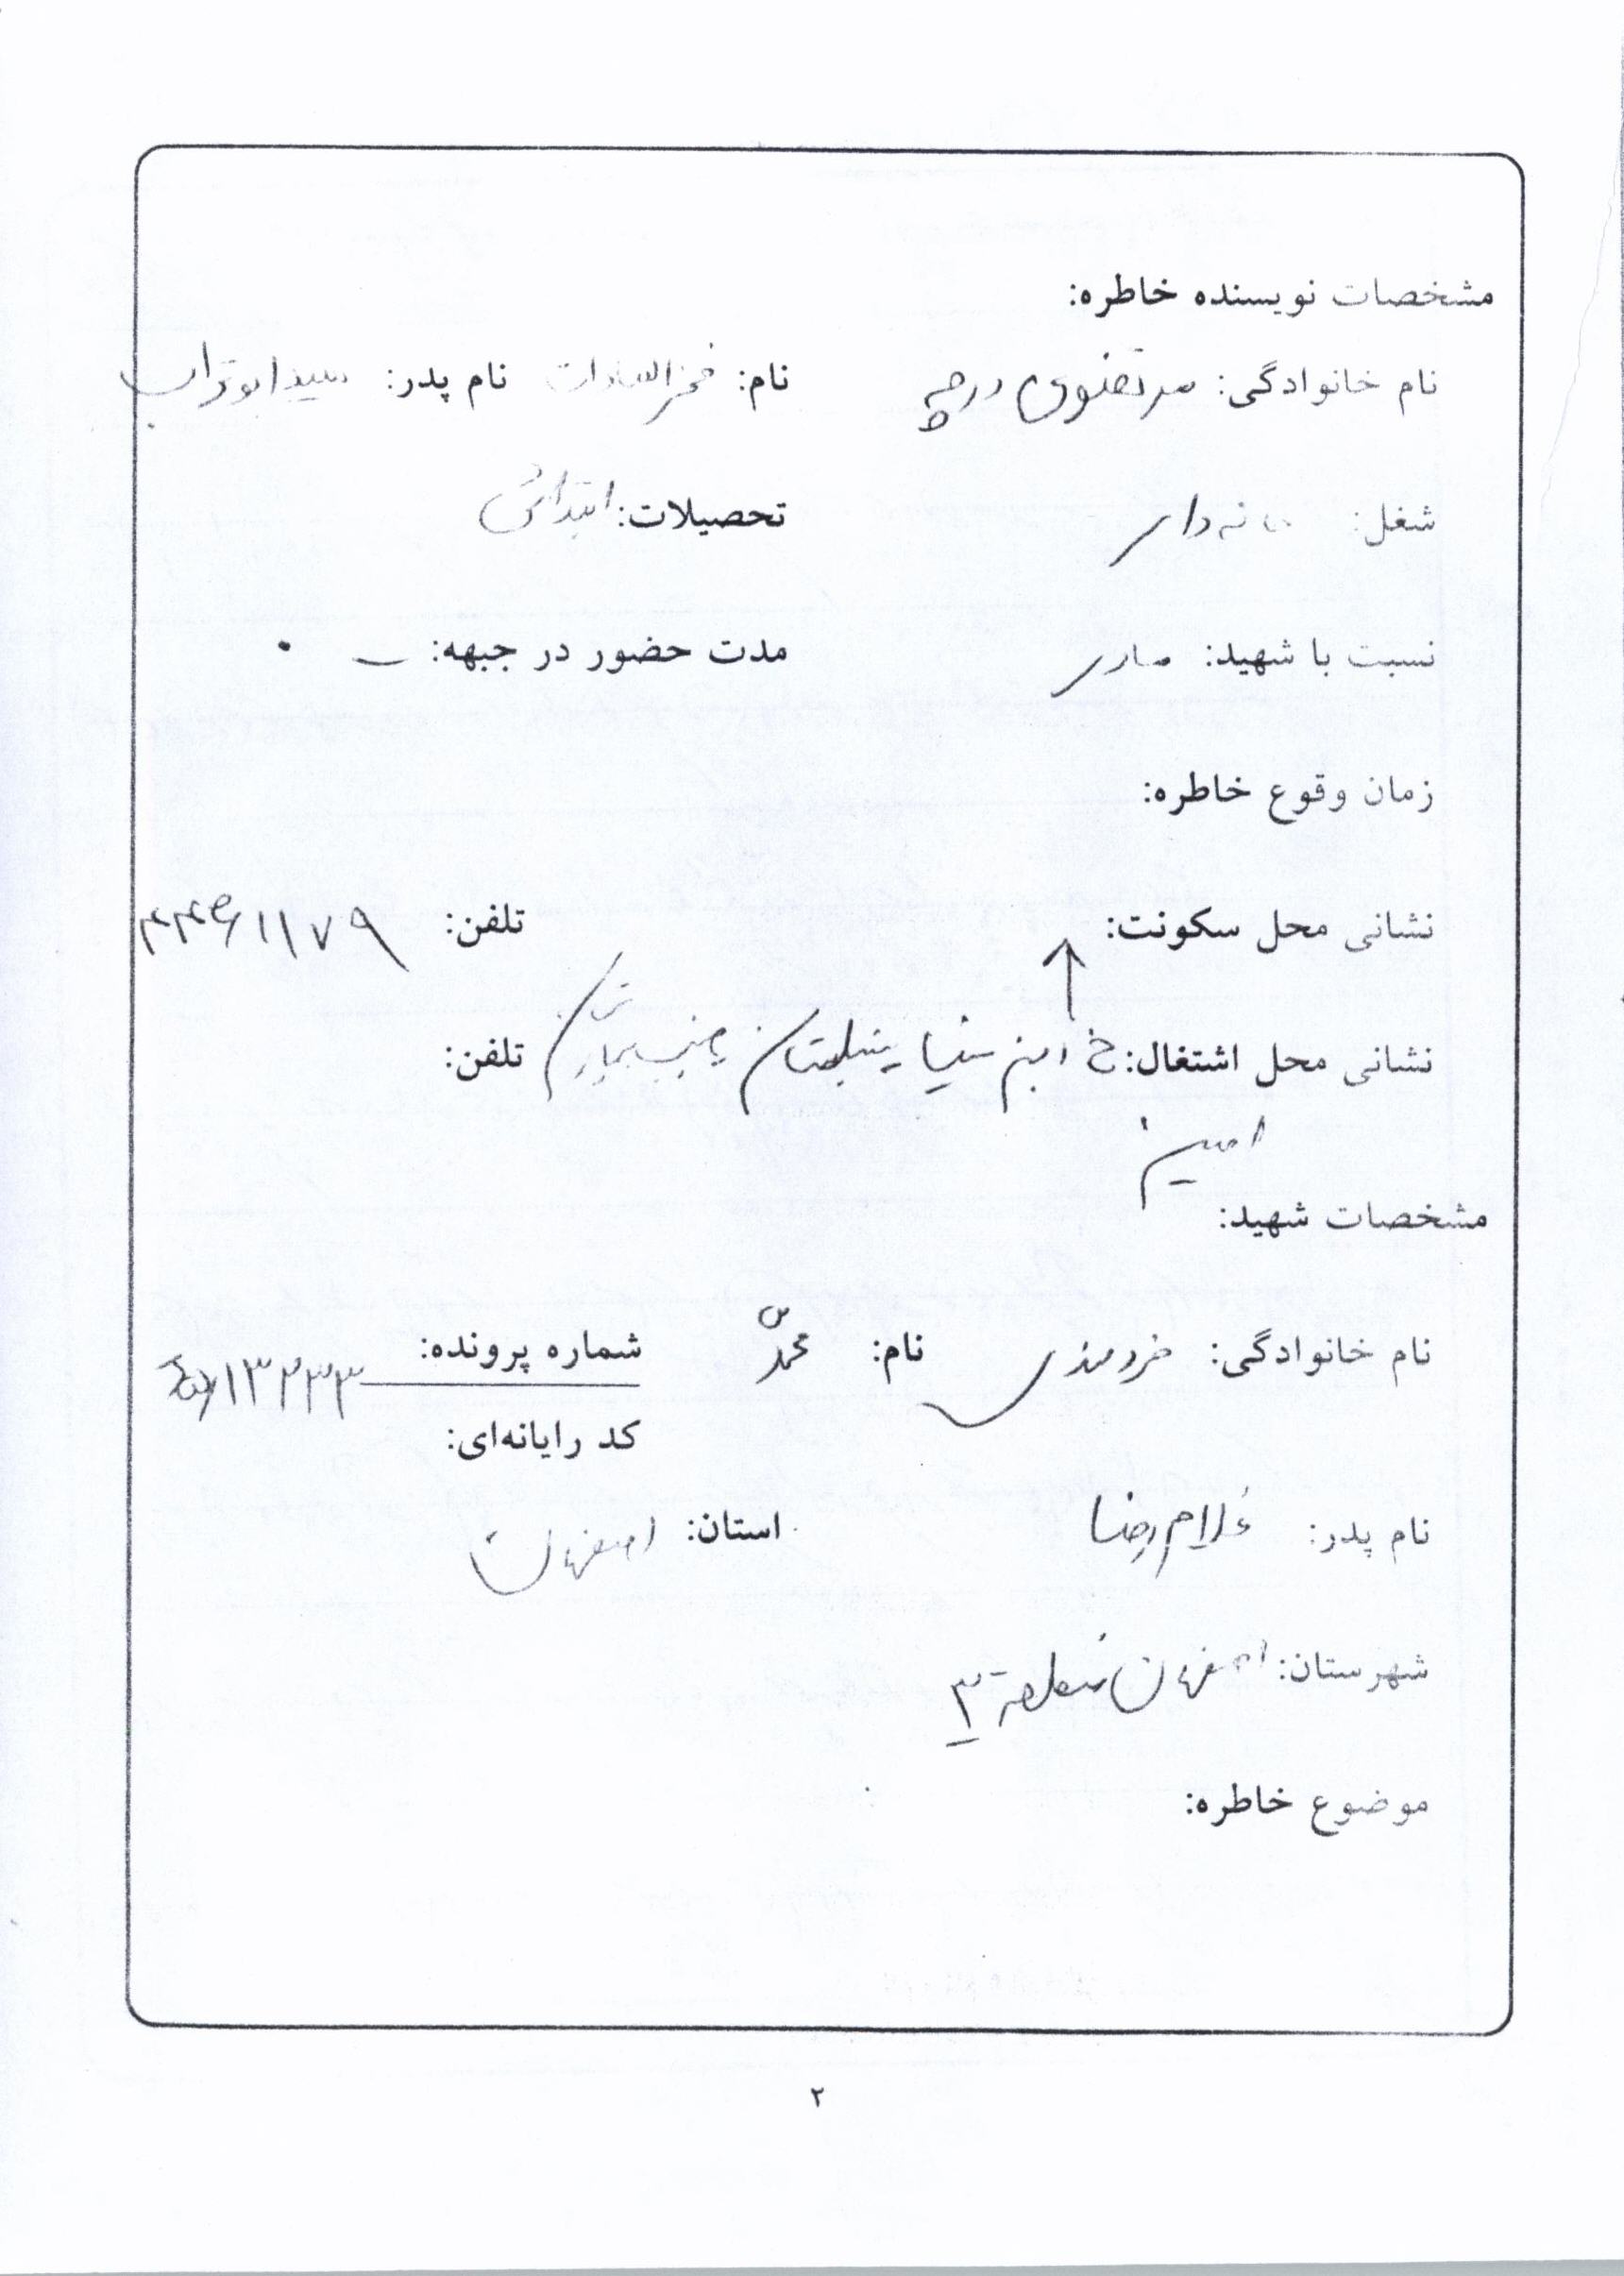 مشخصات نویسنده خاطره:
نام خانوادگی: مرتضوی درچه نام: فخرالسادات نام پدر: سید ابوتراب
شغل: خانه دار تحصیلات: ابتدائی
نسبت با شهید: مادر مدت حضور در جبهه: ــ
زمان وقوع خاطره:
نشانی محل سکونت: تلفن: ۴۴۶۱۱۷۹
نشانی محل اشتغال: خ ابن سینا جنب تلفن:
امین
مشخصات شهید:
نام خانوادگی: خردمندی نام: محمد شماره پرونده: ۱۳۲۳۳
کد رایانه‌ای:
نام پدر: غلامرضا استان: اصفهان
شهرستان: اصفهان منطقه ۳
موضوع خاطره:
۲